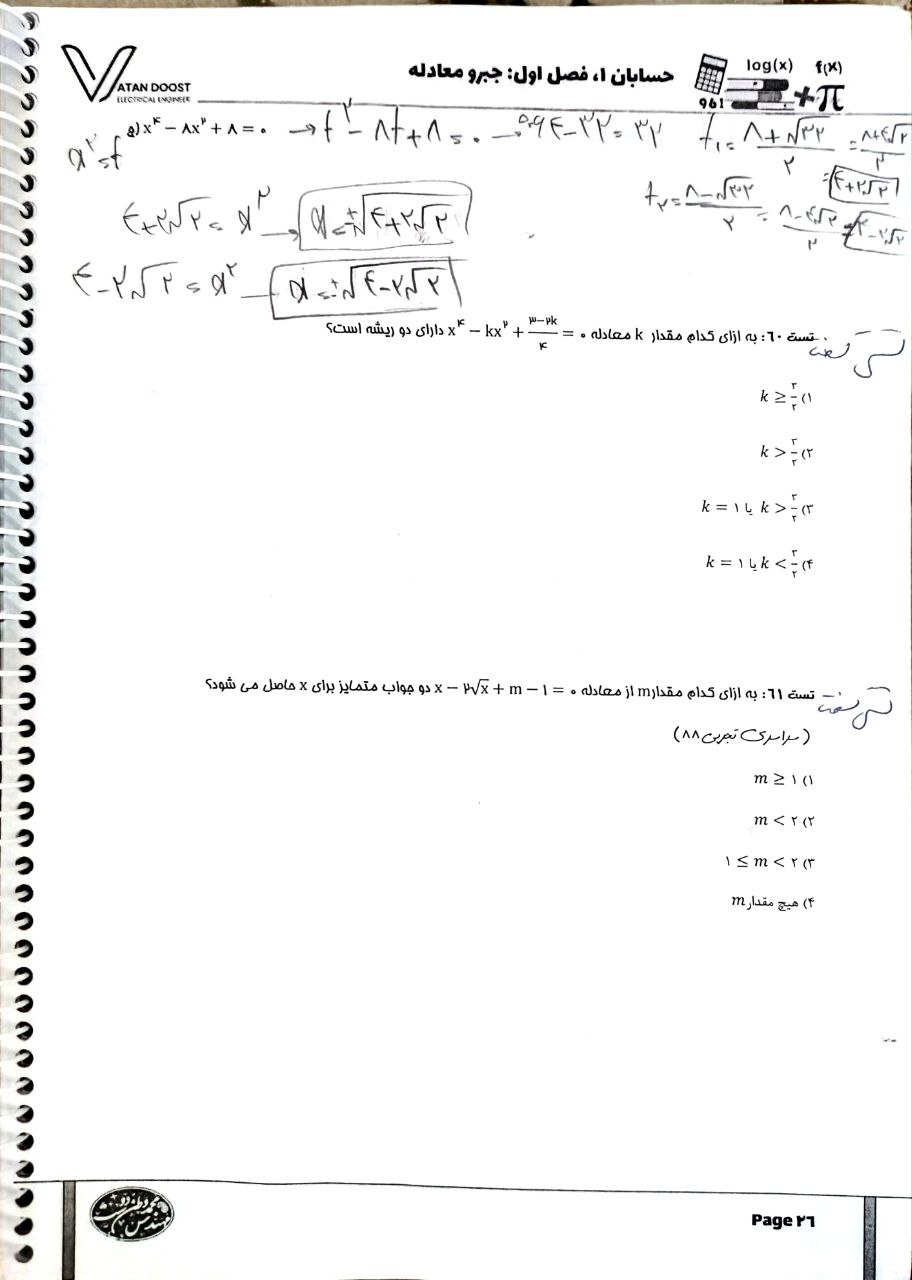 ATAN DOOST
ELECTRICAL ENGINEER
حسابان ۱، فصل اول: جبر و معادله
log(x) f(x)
۹۶۱ +π
x^۲ = t
a) x^۴ − ۸x^۲ + ۸ = ۰ → t^۲ − ۸t + ۸ = ۰ → ۶۴ − ۳۲ = ۳۲
t₁ = (۸+√۳۲)/۲ = (۸+۴√۲)/۲ = ۴+۲√۲
t₂ = (۸−√۳۲)/۲ = (۸−۴√۲)/۲ = ۴−۲√۲
۴+۲√۲ = x^۲ → x = ±√(۴+۲√۲)
۴−۲√۲ = x^۲ → x = ±√(۴−۲√۲)
تست ۶۰: به ازای کدام مقدار k معادله x^۴ − kx^۲ + (۳−۲k)/۴ = ۰ دارای دو ریشه است؟
۱) k ≥ ۳/۲
۲) k > ۳/۲
۳) k > ۳/۲ یا k = ۱
۴) k < ۳/۲ یا k = ۱
تست ۶۱: به ازای کدام مقدار m از معادله x − ۲√x + m − ۱ = ۰ دو جواب متمایز برای x حاصل می شود؟
(سراسری تجربی ۸۸)
۱) m ≥ ۱
۲) m < ۲
۳) ۱ ≤ m < ۲
۴) هیچ مقدار m
Page ۲۶